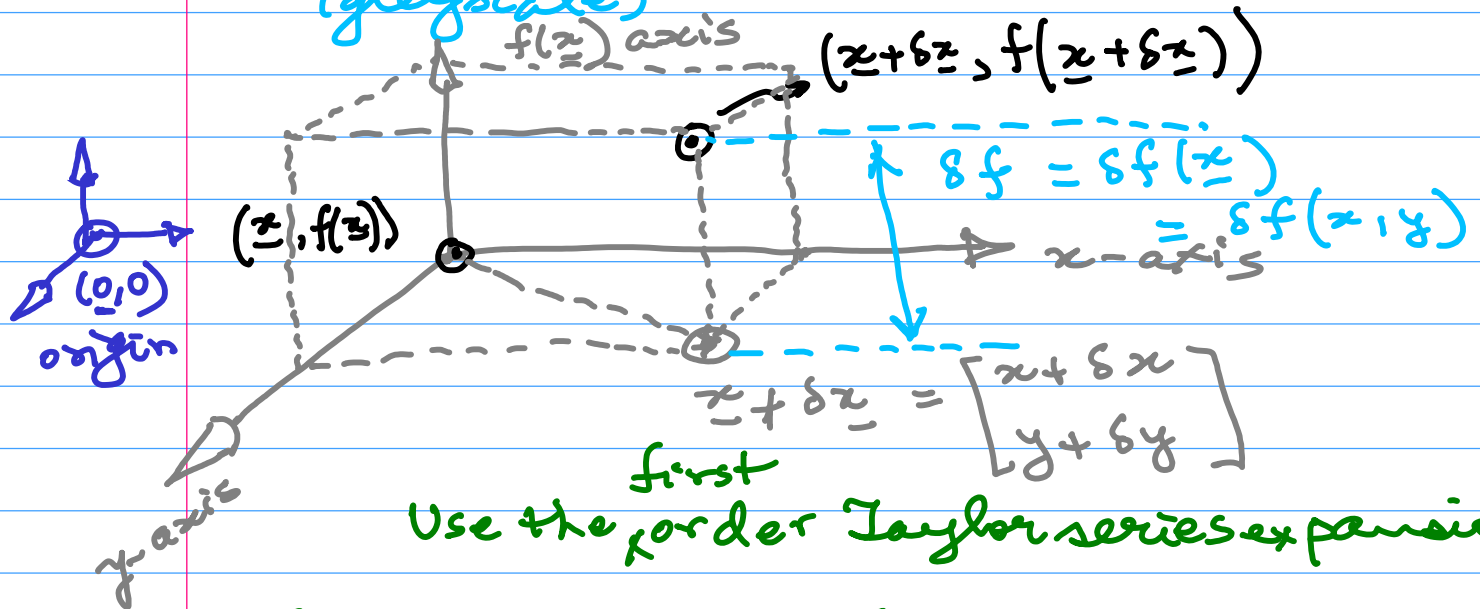 (greyscale)
f(x̲) axis
(x̲+δx̲, f(x̲+δx̲))
δf = δf(x̲)
= δf(x,y)
(x̲, f(x̲))
x-axis
(0̲,0)
origin
x̲+δx̲ = [x+δx
y+δy]
y-axis
first
Use the order Taylor series expansi